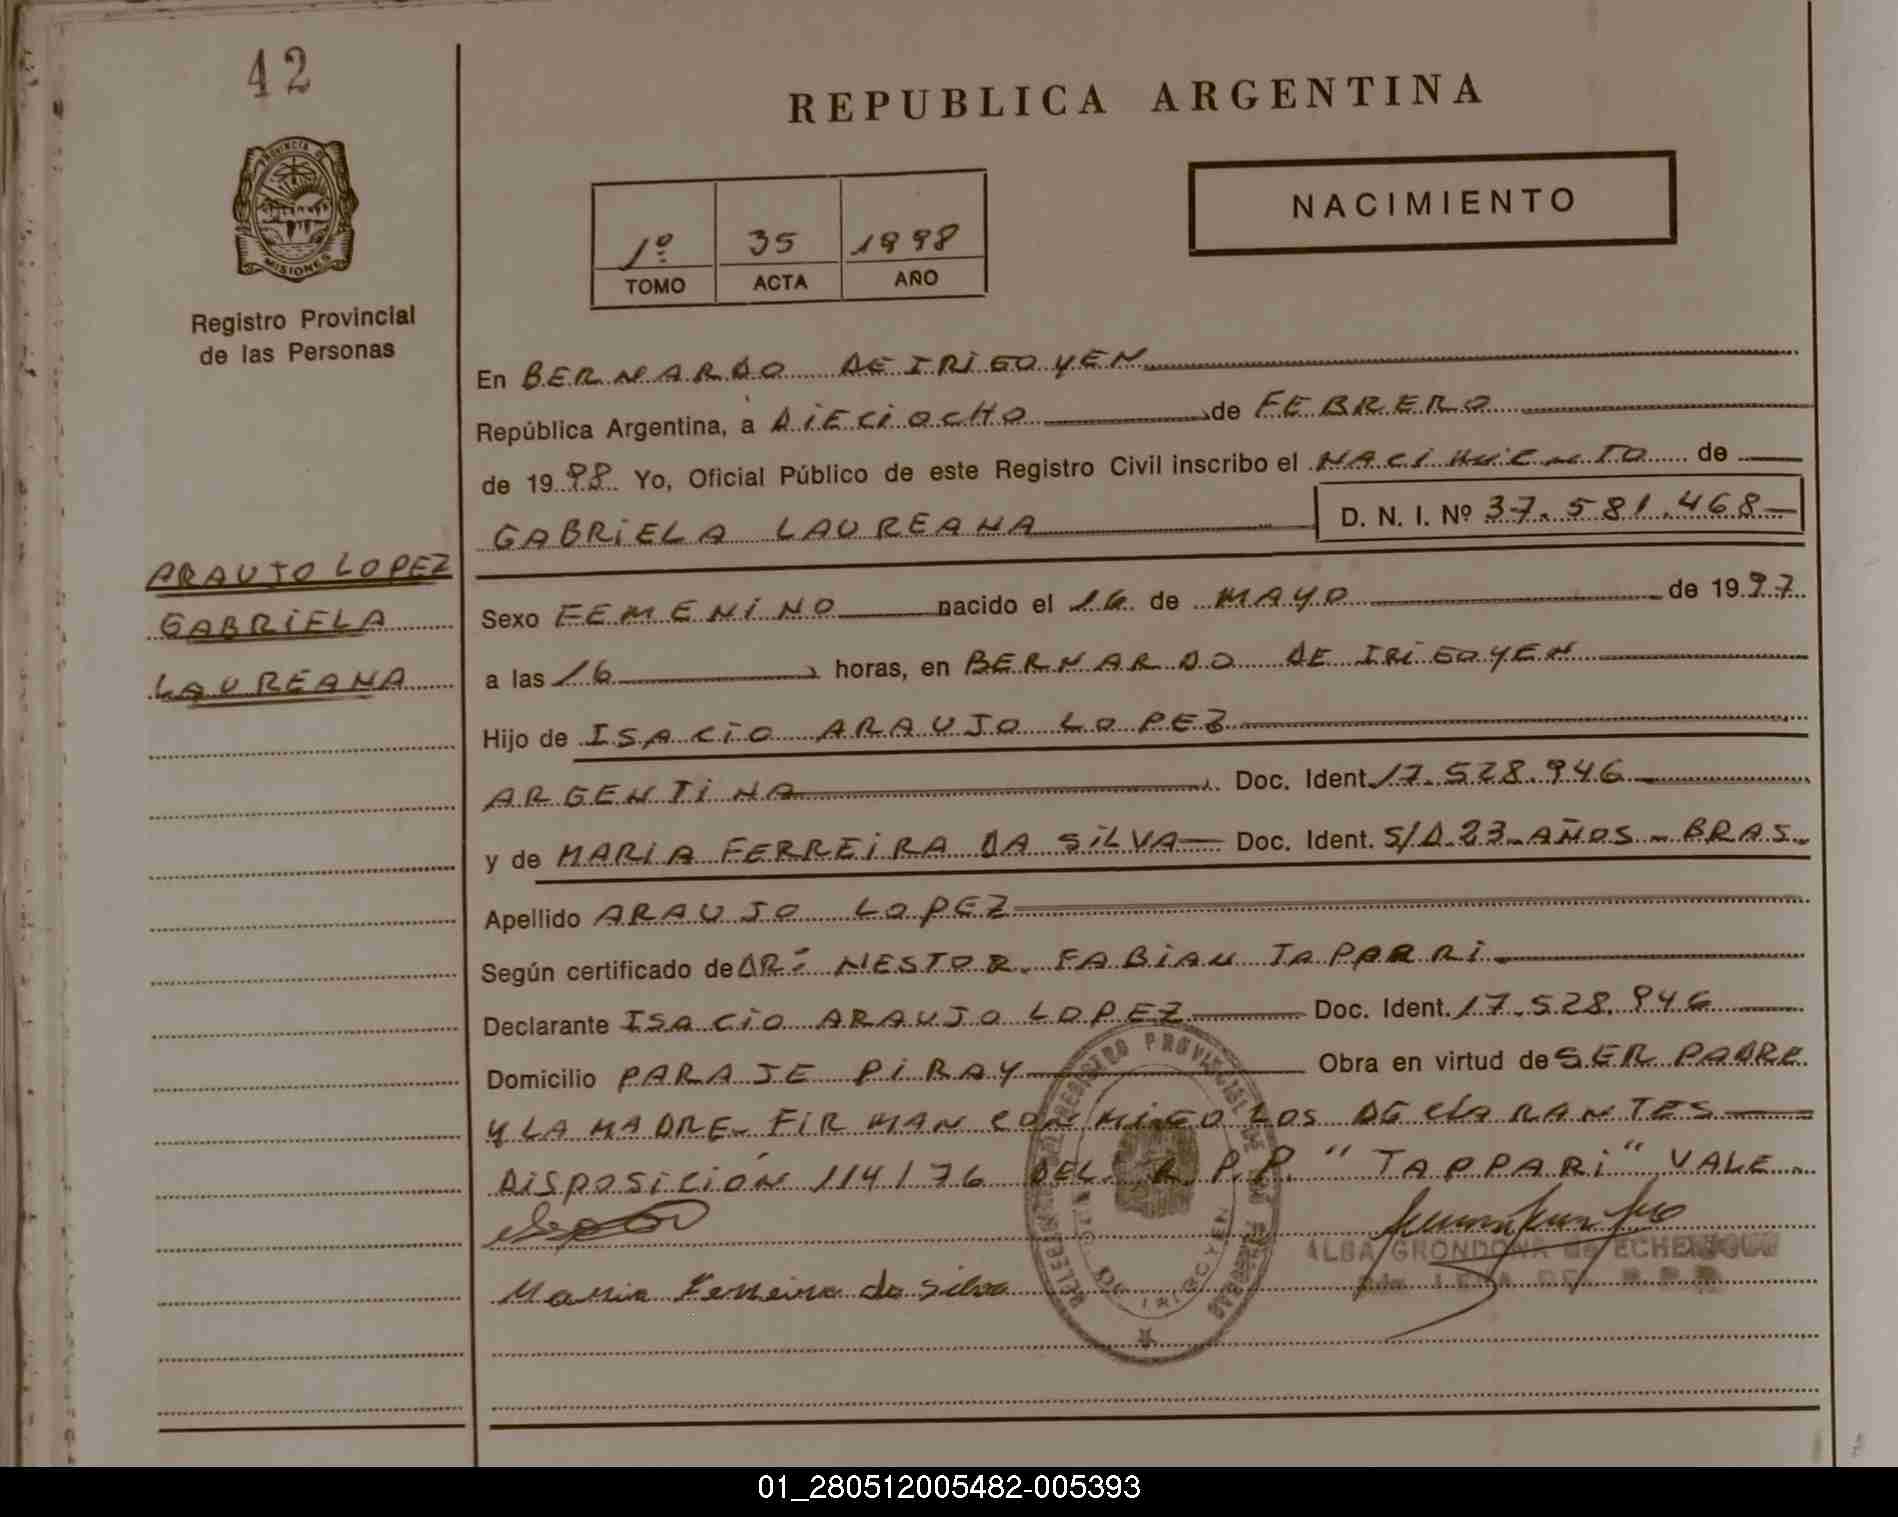 42
PROVINCIA DE
MISIONES
Registro Provincial
de las Personas
ARAUJO LOPEZ
GABRIELA
LAUREANA
REPUBLICA ARGENTINA
1º 35 1998
TOMO ACTA AÑO
NACIMIENTO
En BERNARDO DE IRIGOYEN
República Argentina, a DIECIOCHO de FEBRERO
de 1998 Yo, Oficial Público de este Registro Civil inscribo el NACIMIENTO de
GABRIELA LAUREANA D. N. I. Nº 37.581.468
Sexo FEMENINO nacido el 16 de MAYO de 1997
a las 16 horas, en BERNARDO DE IRIGOYEN
Hijo de ISACIO ARAUJO LOPEZ
ARGENTINA Doc. Ident. 17.528.946
y de MARIA FERREIRA DA SILVA Doc. Ident. S/D.23 AÑOS - BRAS.
Apellido ARAUJO LOPEZ
Según certificado de DR: NESTOR FABIAN TAPARRI
Declarante ISACIO ARAUJO LOPEZ Doc. Ident. 17.528.946
Domicilio PARAJE PIRAY Obra en virtud de SER PADRE
Y LA MADRE - FIRMAN CONMIGO LOS DECLARANTES
DISPOSICIÓN 114/76 DEL R.P.P. "TAPPARI" VALE
Maria Ferreira da Silva
ALBA GRONDONA de ECHE
REGISTRO PROVINCIAL DE
IRIGOYEN
01_280512005482-005393